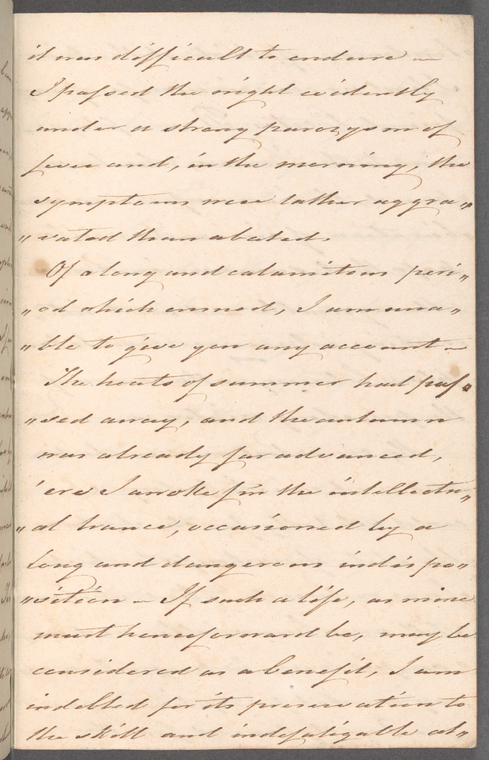 it was difficult to endure —
I passed the night evidently
under a strong paroxysm of
fever and, in the morning, the
symptoms were rather aggra„
„vated than abated.
Of a long and calamitous peri„
„od which ensued, I am una„
„ble to give you any account —
The heats of summer had pas„
„sed away, and the autumn
was already far advanced,
'ere I awoke fm the intellectu„
„al trance, occasioned by a
long and dangerous indispo„
„sition — If such a life, as mine
must henceforward be, may be
considered as a benefit, I am
indebted for its preservation to
the skill and indefatigable at„